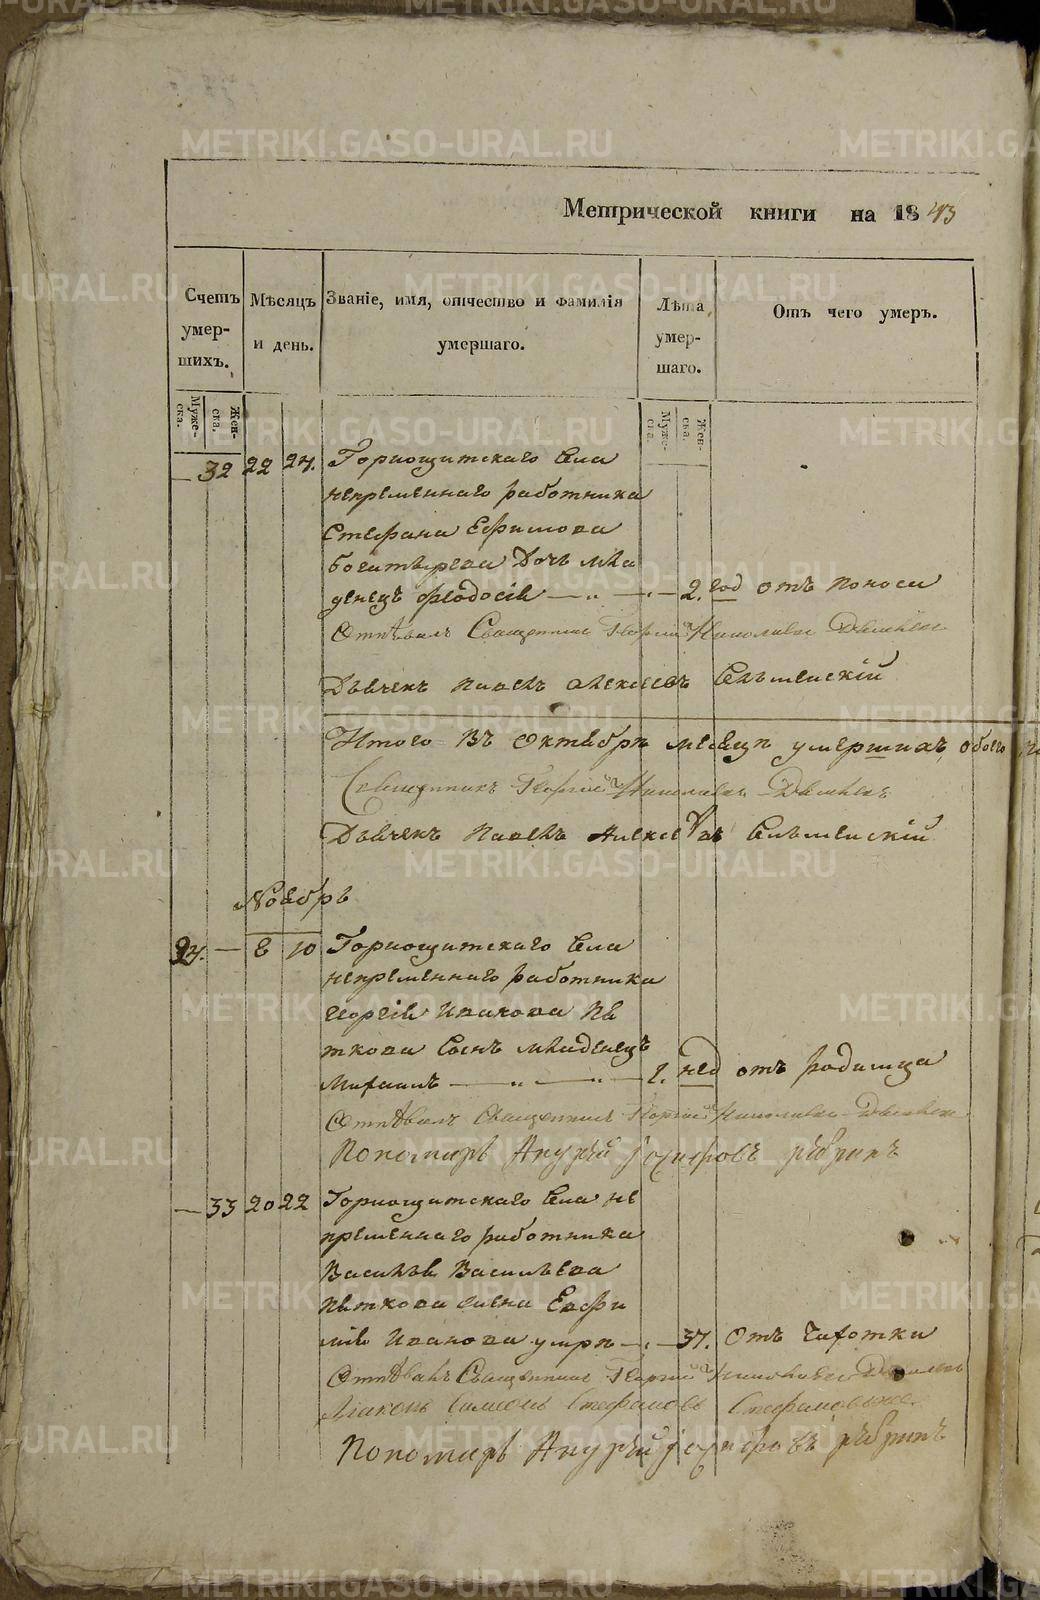 Метрической книги на 1843
Счетъ умер-шихъ.
Муже-ска.
Жен-ска.
Мѣсяцъ и день.
Званіе, имя, отчество и фамилія умершаго.
Лѣта умер-шаго.
Муже-ска.
Жен-ска.
Отъ чего умеръ.
— 32 22 24. Горнощитскаго села
непременнаго работника
Стефана Ефимова
Богатырева дочь мла
денецъ Феодосія — „ — „ — 2. год отъ поноса
Отпѣвалъ Священникъ Георгий Николаевъ
Дьячекъ Павелъ Алексеевъ
Итого въ Октябрѣ месяцѣ умершихъ обоего
Священникъ Георгий Николаевъ
Дьячекъ Павелъ Алексеевъ
Ноябрь
24. — 8 10 Горнощитскаго села
непременнаго работника
Георгія Иванова Пѣ
ткова сынъ младенецъ
Михаилъ — „ — „ — 1. нед отъ родимца
Отпѣвалъ Священникъ Георгий Николаевъ
Пономарь
— 33 20 22 Горнощитскаго села не
пременнаго работника
Василья Васильева
Пѣткова жена Евфи
мія Иванова умрѣ — „ — 37. Отъ чахотки
Отпѣвалъ Священникъ Георгий Николаевъ
Диаконъ Симеонъ Стефановъ
Пономарь
METRIKI.GASO-URAL.RU